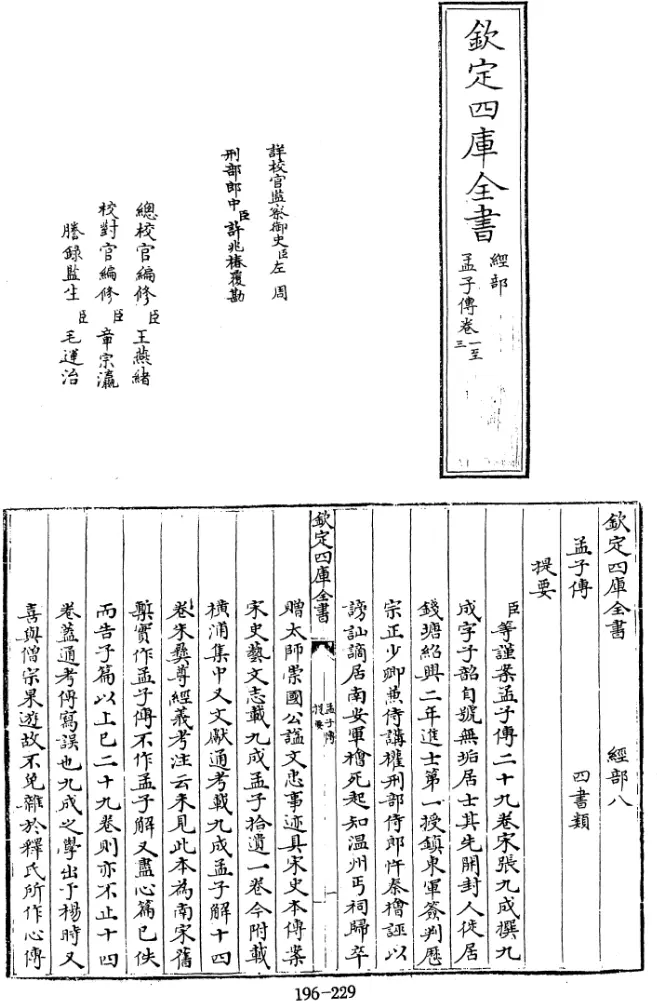 欽定四庫全書
經部
孟子傳卷一至三
詳校官監察御史臣左周
刑部郎中臣許兆椿覆勘
總校官編修臣王燕緒
校對官編修臣章宗瀛
謄錄監生臣毛運治
欽定四庫全書 經部八
孟子傳 四書類
提要
臣等謹案孟子傳二十九卷宋張九成撰九
成字子韶自號無垢居士其先開封人徙居
錢塘紹興二年進士第一授鎮東軍簽判歷
宗正少卿兼侍講權刑部侍郎忤秦檜誣以
謗訕謫居南安軍檜死起知溫州丐祠歸卒
欽定四庫全書
孟子傳
提要
一
贈太師崇國公諡文忠事迹具宋史本傳案
宋史藝文志載九成孟子拾遺一卷今附載
橫浦集中又文獻通考載九成孟子解十四
卷朱彝尊經義考注云未見此本為南宋舊
槧實作孟子傳不作孟子解又盡心篇已佚
而告子篇以上已二十九卷則亦不止十四
卷蓋通考傳寫誤也九成之學出于楊時又
喜與僧宗杲遊故不免雜於釋氏所作心傳
196-229